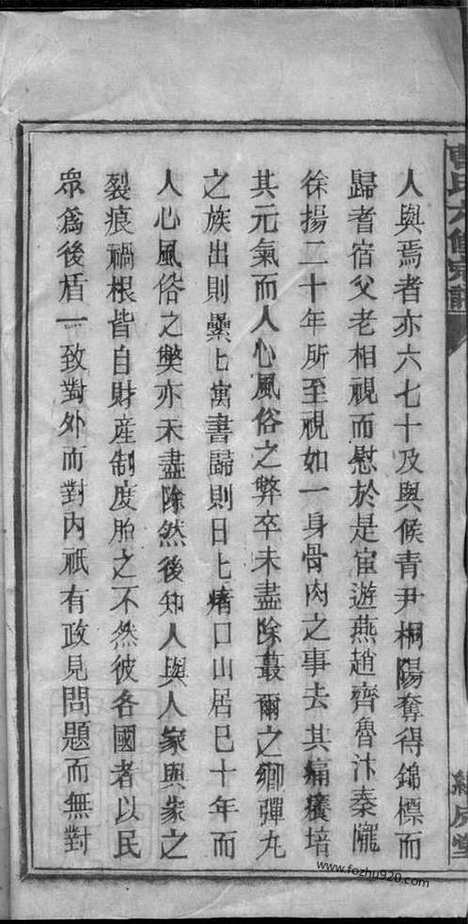 曹氏六修宗譜
人與焉者亦六七十及與候青尹桐陽奪得錦標而
歸耆宿父老相視而慰於是宦遊燕趙齊魯汴秦隴
徐揚二十年所至視如一身骨肉之事去其痛癢培
其元氣而人心風俗之弊卒未盡除蕞爾之鄉彈丸
之族出則纍匕寓書歸則日匕瘏口山居巳十年而
人心風俗之獘亦未盡除然後知人與人家與家之
裂痕禍根皆自財產制度胎之不然彼各國者以民
眾爲後盾一致對外而對內祇有政見問題而無對
www.fozhu920.com